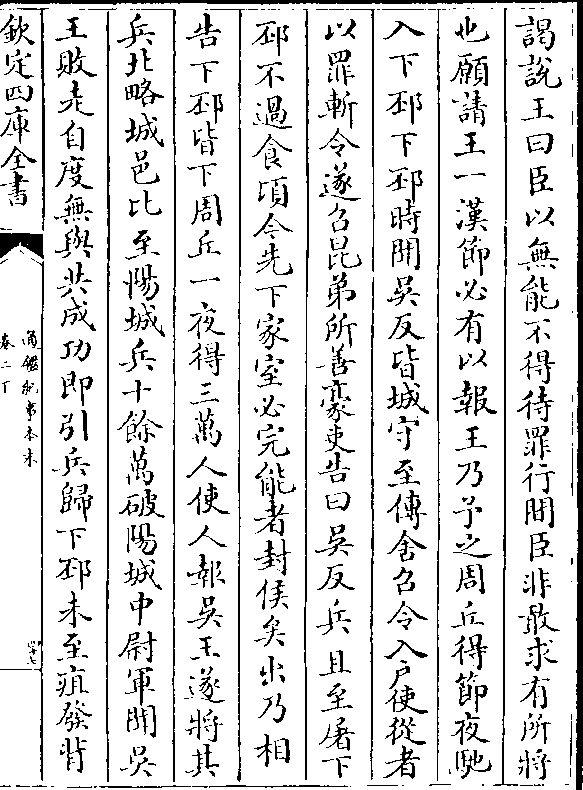 謁説王曰臣以無能不得待罪行間臣非敢求有所將
也願請王一漢節必有以報王乃予之周丘得節夜馳
入下邳下邳時聞吳反皆城守至傳舍召令入戶使從者
以罪斬令遂召昆弟所善豪吏告曰吳反兵且至屠下
邳不過食頃今先下家室必完能者封侯矣出乃相
告下邳皆下周丘一夜得三萬人使人報吳王遂將其
兵北略城邑比至陽城兵十餘萬破陽城中尉軍聞吳
王敗走自度無與共成功即引兵歸下邳未至疽發背
欽定四庫全書
通鑑紀事本末
卷二下
四十七